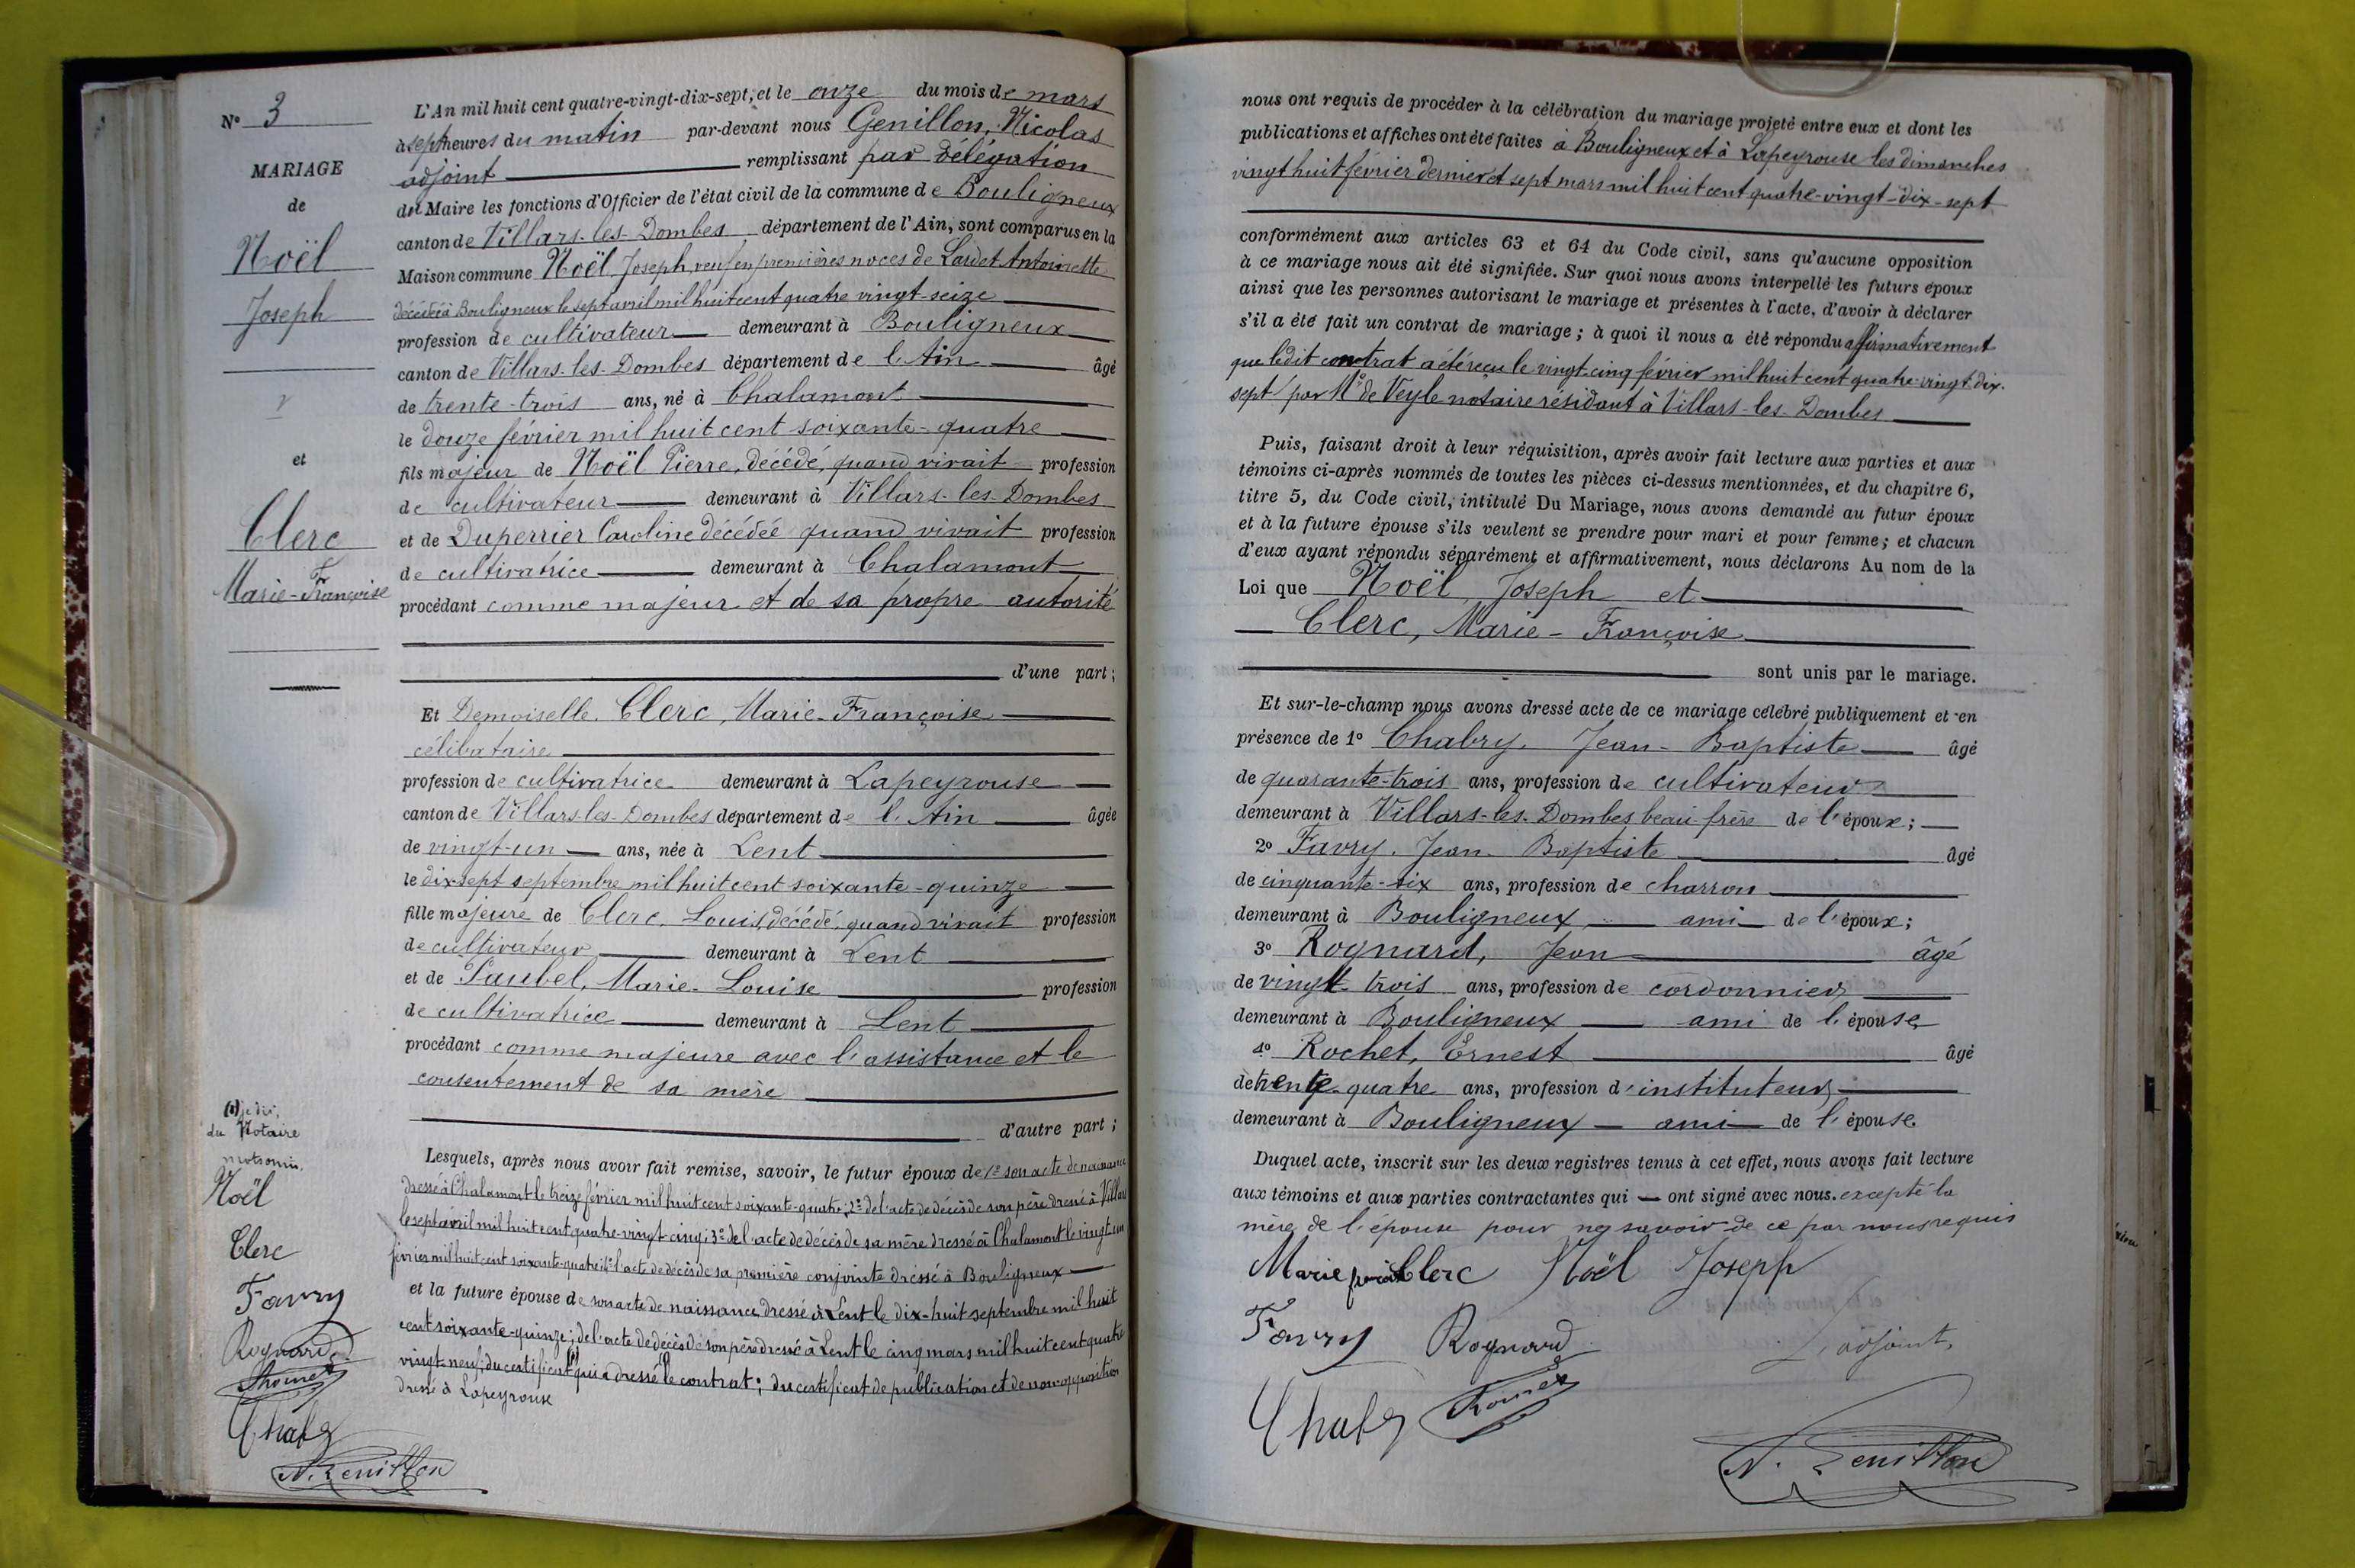 N° 3
MARIAGE
de
Noël
Joseph
et
Clerc
Marie-Françoise
L'An mil huit cent quatre-vingt-dix-sept, et le onze du mois de mars
à sept heures du matin par-devant nous Genillon, Nicolas
adjoint remplissant par délégation
du Maire les fonctions d'Officier de l'état civil de la commune de Bouligneux
canton de Villars-les-Dombes département de l'Ain, sont comparus en la
Maison commune Noël Joseph, veuf en premières noces de Lardet Antoinette
décédée à Bouligneux le sept avril mil huit cent quatre vingt-seize
profession de cultivateur demeurant à Bouligneux
canton de Villars-les-Dombes département de l'Ain âgé
de trente-trois ans, né à Chalamont
le douze février mil huit cent soixante-quatre
fils majeur de Noël Pierre, décédé, quand vivait profession
de cultivateur demeurant à Villars-les-Dombes
et de Duperrier Caroline décédée quand vivait profession
de cultivatrice demeurant à Chalamont
procédant comme majeur et de sa propre autorité
d'une part ;
Et Demoiselle Clerc, Marie-Françoise
célibataire
profession de cultivatrice demeurant à Lapeyrouse
canton de Villars-les-Dombes département de l'Ain âgée
de vingt-un ans, née à Lent
le dix-sept septembre mil huit cent soixante-quinze
fille majeure de Clerc, Louis, décédé, quand vivait profession
de cultivateur demeurant à Lent
et de Paubel, Marie-Louise profession
de cultivatrice demeurant à Lent
procédant comme majeure avec l'assistance et le
consentement de sa mère
d'autre part ;
Lesquels, après nous avoir fait remise, savoir, le futur époux de 1° son acte de naissance
dressé à Chalamont le treize février mil huit cent soixante-quatre ; 2° de l'acte de décès de son père dressé à Villars
le sept avril mil huit cent quatre-vingt-cinq ; 3° de l'acte de décès de sa mère dressé à Chalamont le vingt un
février mil huit cent soixante-quatre ; 4° l'acte de décès de sa première conjointe dressé à Bouligneux
et la future épouse de son acte de naissance dressé à Lent le dix-huit septembre mil huit
cent soixante-quinze ; de l'acte de décès de son père dressé à Lent le cinq mars mil huit cent quatre
vingt-neuf ; du certificat (1) qui a dressé le contrat ; du certificat de publication et de non opposition
dressé à Lapeyrouse
(1) je dis,
du Notaire
mots omis.
Noël
Clerc
Favry
Rognard
N. Genillon
nous ont requis de procéder à la célébration du mariage projeté entre eux et dont les
publications et affiches ont été faites à Bouligneux et à Lapeyrouse les dimanches
vingt huit février dernier et sept mars mil huit cent quatre-vingt-dix-sept
conformément aux articles 63 et 64 du Code civil, sans qu'aucune opposition
à ce mariage nous ait été signifiée. Sur quoi nous avons interpellé les futurs époux
ainsi que les personnes autorisant le mariage et présentes à l'acte, d'avoir à déclarer
s'il a été fait un contrat de mariage ; à quoi il nous a été répondu affirmativement
que ledit contrat a été reçu le vingt-cinq février mil huit cent quatre-vingt-dix-
sept par Me de Veyle notaire résidant à Villars-les-Dombes
Puis, faisant droit à leur réquisition, après avoir fait lecture aux parties et aux
témoins ci-après nommés de toutes les pièces ci-dessus mentionnées, et du chapitre 6,
titre 5, du Code civil, intitulé Du Mariage, nous avons demandé au futur époux
et à la future épouse s'ils veulent se prendre pour mari et pour femme ; et chacun
d'eux ayant répondu séparément et affirmativement, nous déclarons Au nom de la
Loi que Noël, Joseph et
Clerc, Marie-Françoise
sont unis par le mariage.
Et sur-le-champ nous avons dressé acte de ce mariage célébré publiquement et en
présence de 1° Chabry, Jean-Baptiste âgé
de quarante-trois ans, profession de cultivateur
demeurant à Villars-les-Dombes beau-frère de l'époux ;
2° Favry, Jean-Baptiste âgé
de cinquante-six ans, profession de charron
demeurant à Bouligneux, ami de l'époux ;
3° Rognard, Jean âgé
de vingt-trois ans, profession de cordonnier
demeurant à Bouligneux ami de l'épouse
4° Rochet, Ernest âgé
de trente-quatre ans, profession d'instituteur
demeurant à Bouligneux ami de l'épouse.
Duquel acte, inscrit sur les deux registres tenus à cet effet, nous avons fait lecture
aux témoins et aux parties contractantes qui ont signé avec nous. excepté la
mère de l'épouse pour ne savoir de ce par nous requis
Marie Clerc Noël Joseph
Favry Rognard
L'adjoint,
N. Genillon